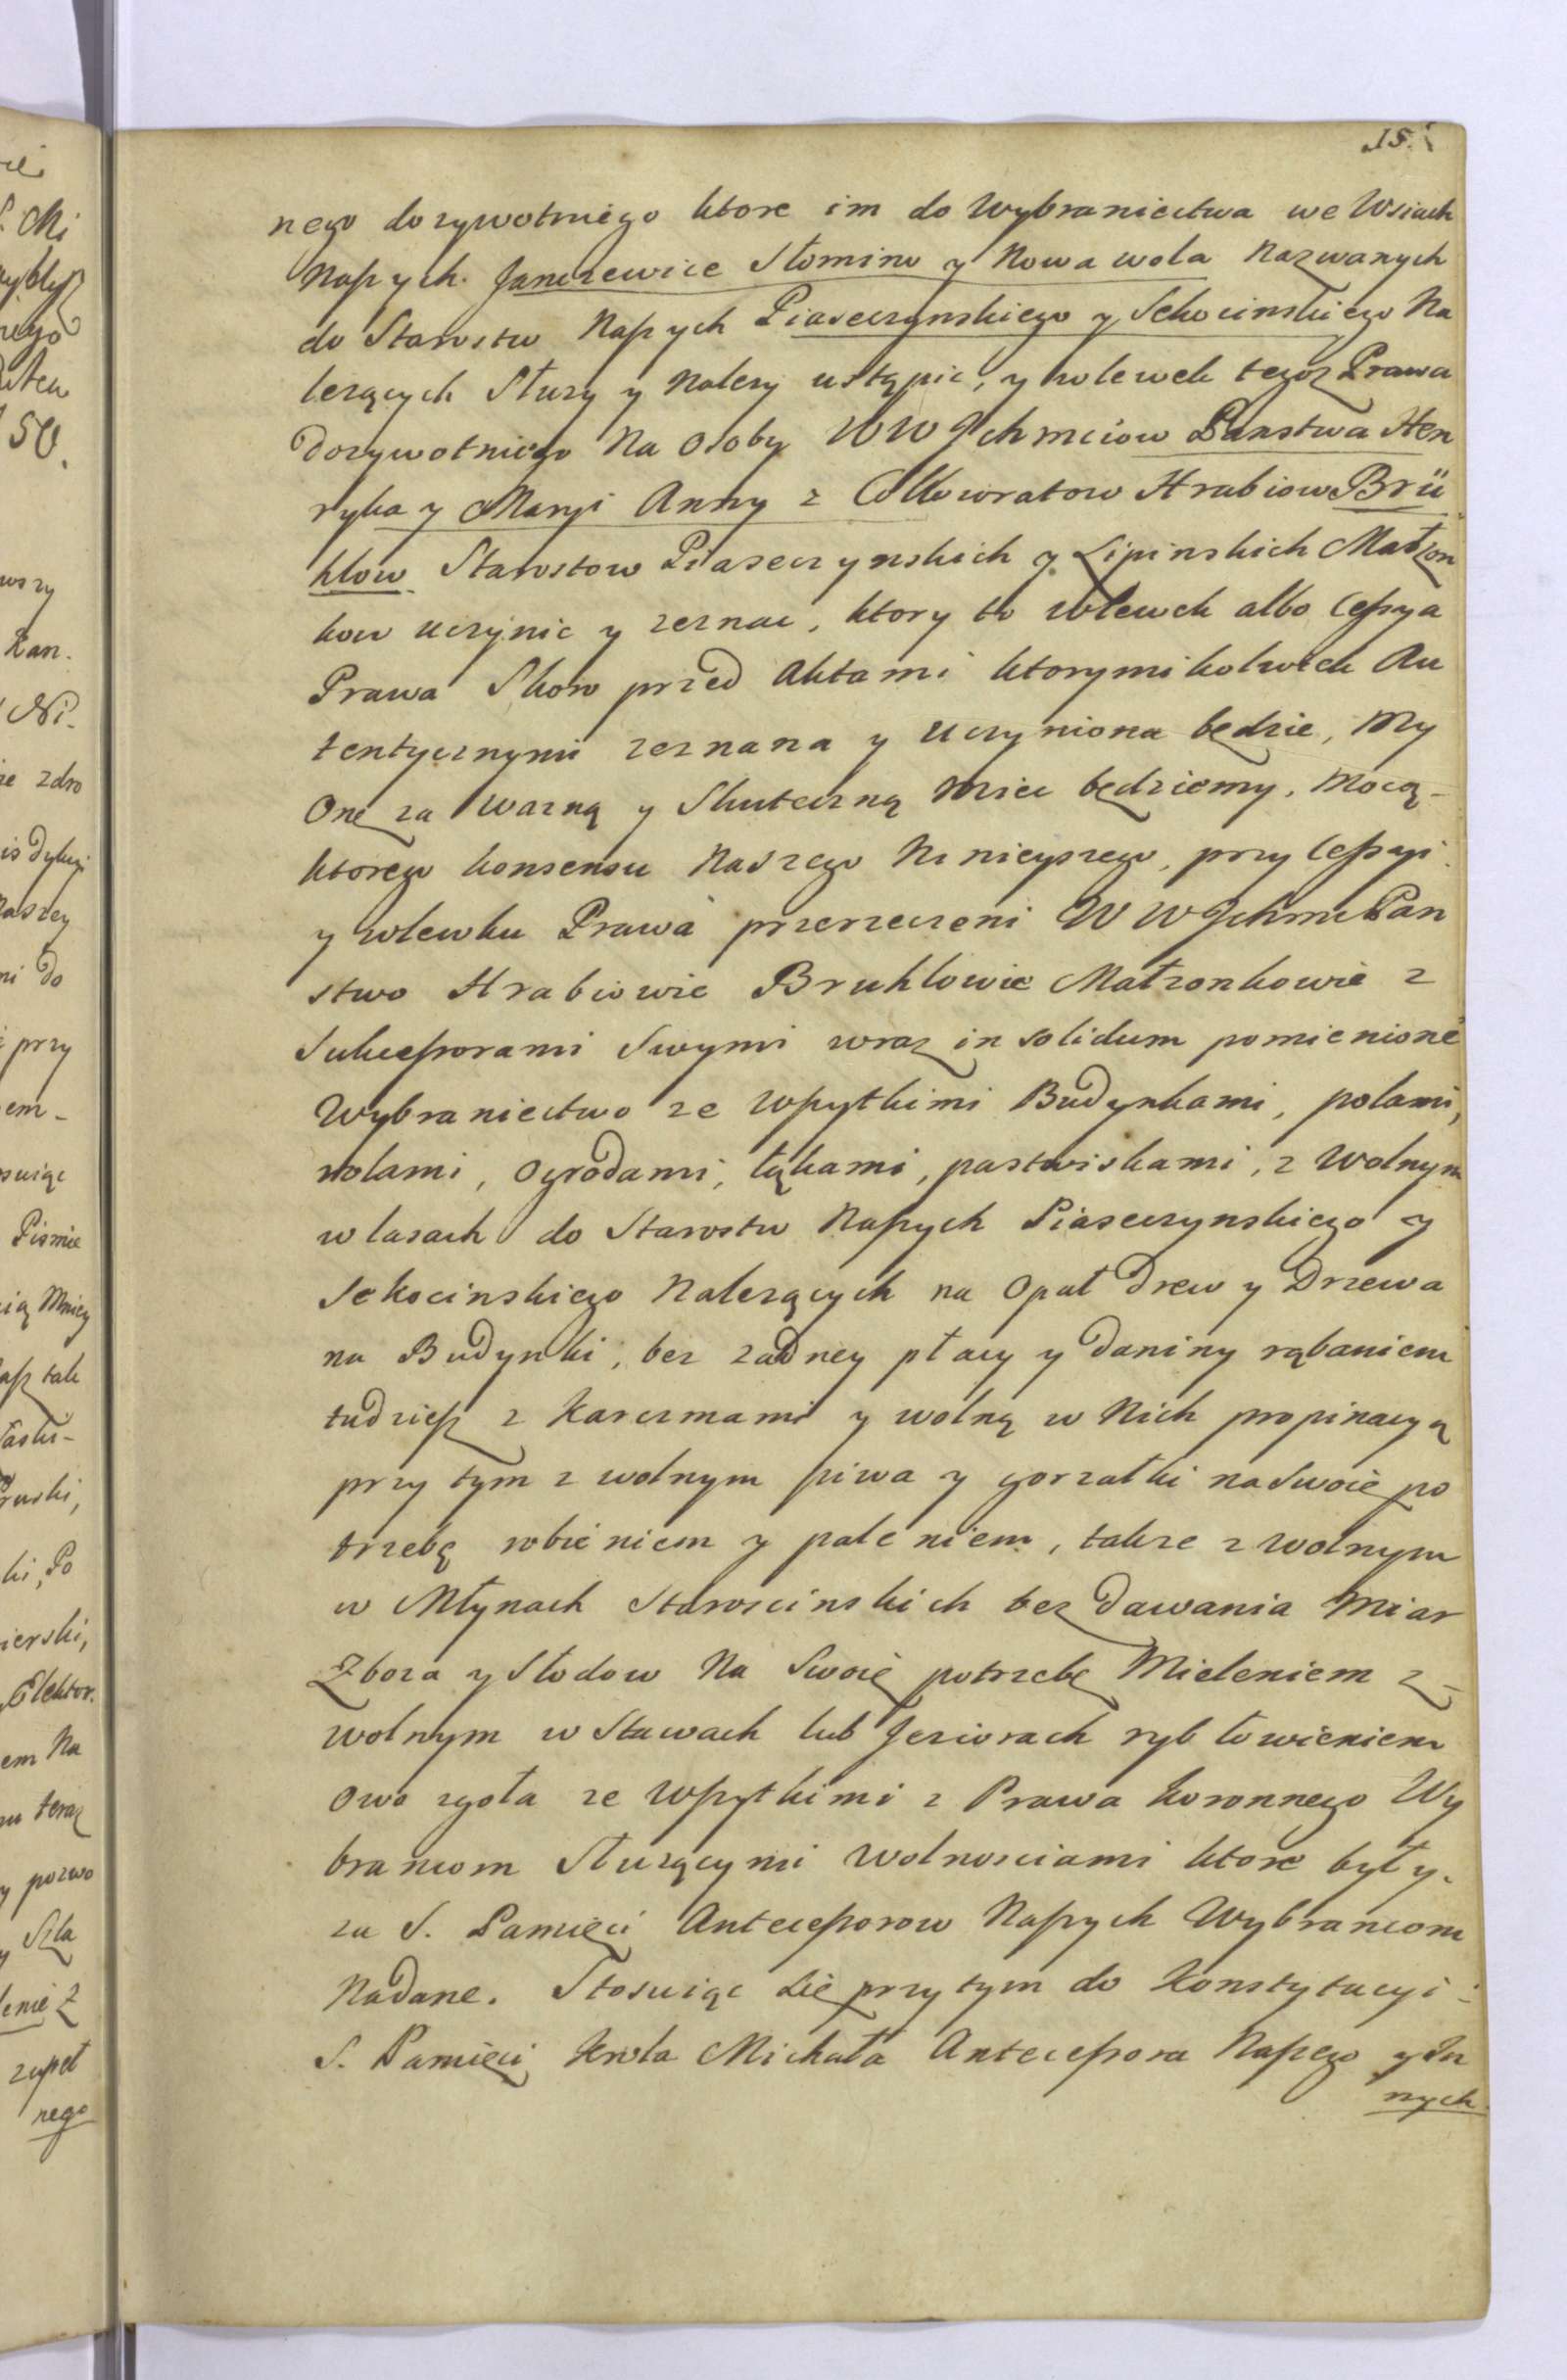 15.
nego dozywotniego ktore im do Wybraniectwa we Wsiach
Naszych. Janczewice Słomino y Nowa wola Nazwanych
do Starostw Naszych Piaseczynskiego y Sekocinskiego Na
lezących Słuzy y Nalezy ustąpic, y wlewek tegoz Prawa
Dozywotniego Na Osoby WW Ichmciow Panstwa Hen
ryka y Maryi Anny z Collowratow Hrabiow Brü
hlow Starostow Piaseczynskich y Lipinskich Małzon
kow uczynic y zeznac, ktory to wlewek albo Cessya
Prawa Skoro przed Aktami ktorymikolwiek Au
tentycznymi zeznana y Uczyniona będzie, My
Onę za Wazną y Skuteczną Miec będziemy. Mocą-
ktorego konsensu Naszego Ninieyszego, przy Cessyi
y wlewku Prawa przerzeczeni W W Ichmc Pan
stwo Hrabiowie Bruhlowie Małzonkowie z
Sukcessorami Swymi wraz in solidum pomienione
Wybraniectwo ze Wszytkimi Budynkami, polami,
rolami, Ogrodami, łąkami, pastwiskami, z Wolnym
w lasach do Starostw Naszych Piaseczynskiego y
Sekocinskiego Nalezących na Opał Drew y Drzewa
na Budynki, bez zadney płacy y Daniny rąbaniem
tudziesz z Karczmami y wolną w Nich propinacyą
przy tym z wolnym piwa y gorzałki na Swoię po
trzebę robieniem y paleniem, takze z wolnym
w Młynach Staroscinskich bez Dawania Miar
Zboza y Słodow Na Swoię potrzebę Mieleniem z-
wolnym w Stawach lub Jeziorach ryb łowieniem
Owo zgoła ze Wszytkimi z Prawa Koronnego Wy
brancom Słuzącymi Wolnosciami ktore były.
za S. Pamięci Antecessorow Naszych Wybrancom
Nadane. Stosuiąc Się przy tym do Konstytucyi
S. Pamięci Krola Michała Antecessora Naszego y In
nych